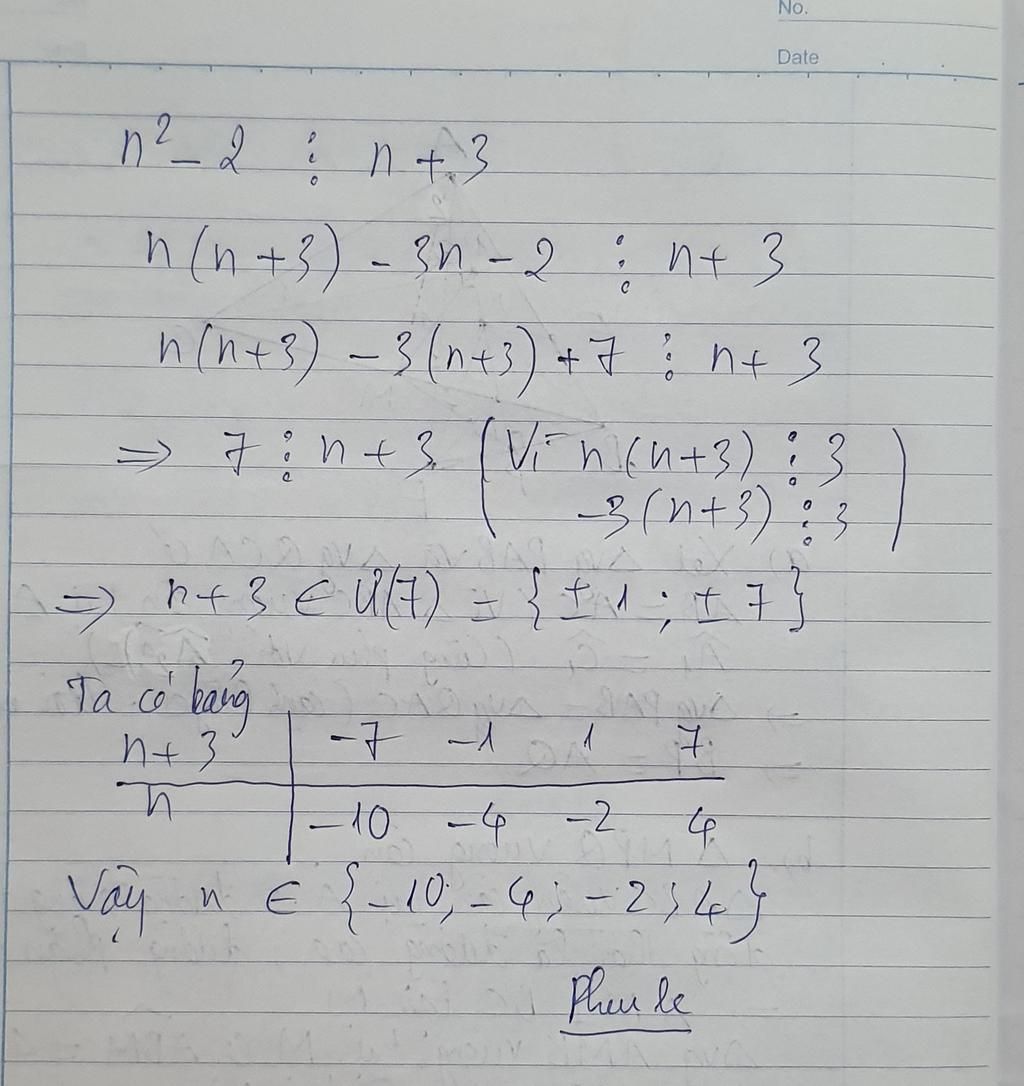 No.
Date
n² - 2 ⋮ n + 3
n(n+3) - 3n - 2 ⋮ n + 3
n(n+3) - 3(n+3) + 7 ⋮ n + 3
⇒ 7 ⋮ n + 3 (Vì n(n+3) ⋮ 3
-3(n+3) ⋮ 3)
⇒ n + 3 ∈ Ư(7) = {±1 ; ±7}
Ta có bảng
n + 3 | -7 -1 1 7
n | -10 -4 -2 4
Vậy n ∈ {-10; -4; -2; 4}